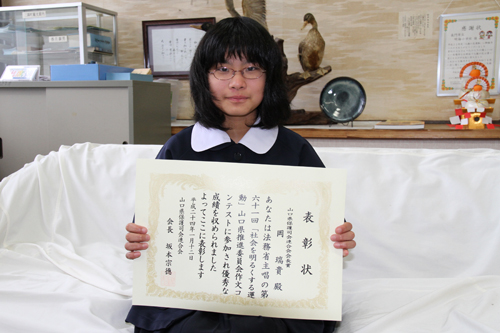 表彰状
山口県保護司会連合会会長賞
岡 瑞貴 殿
あなたは法務省主唱の第
六十一回「社会を明るくする運
動」山口県推進委員会作文コ
ンテストに参加され優秀な
成績を収められました
よってここに表彰します
平成二十四年一月十二日
山口県保護司会連合会
会長 坂本宗德
感謝状